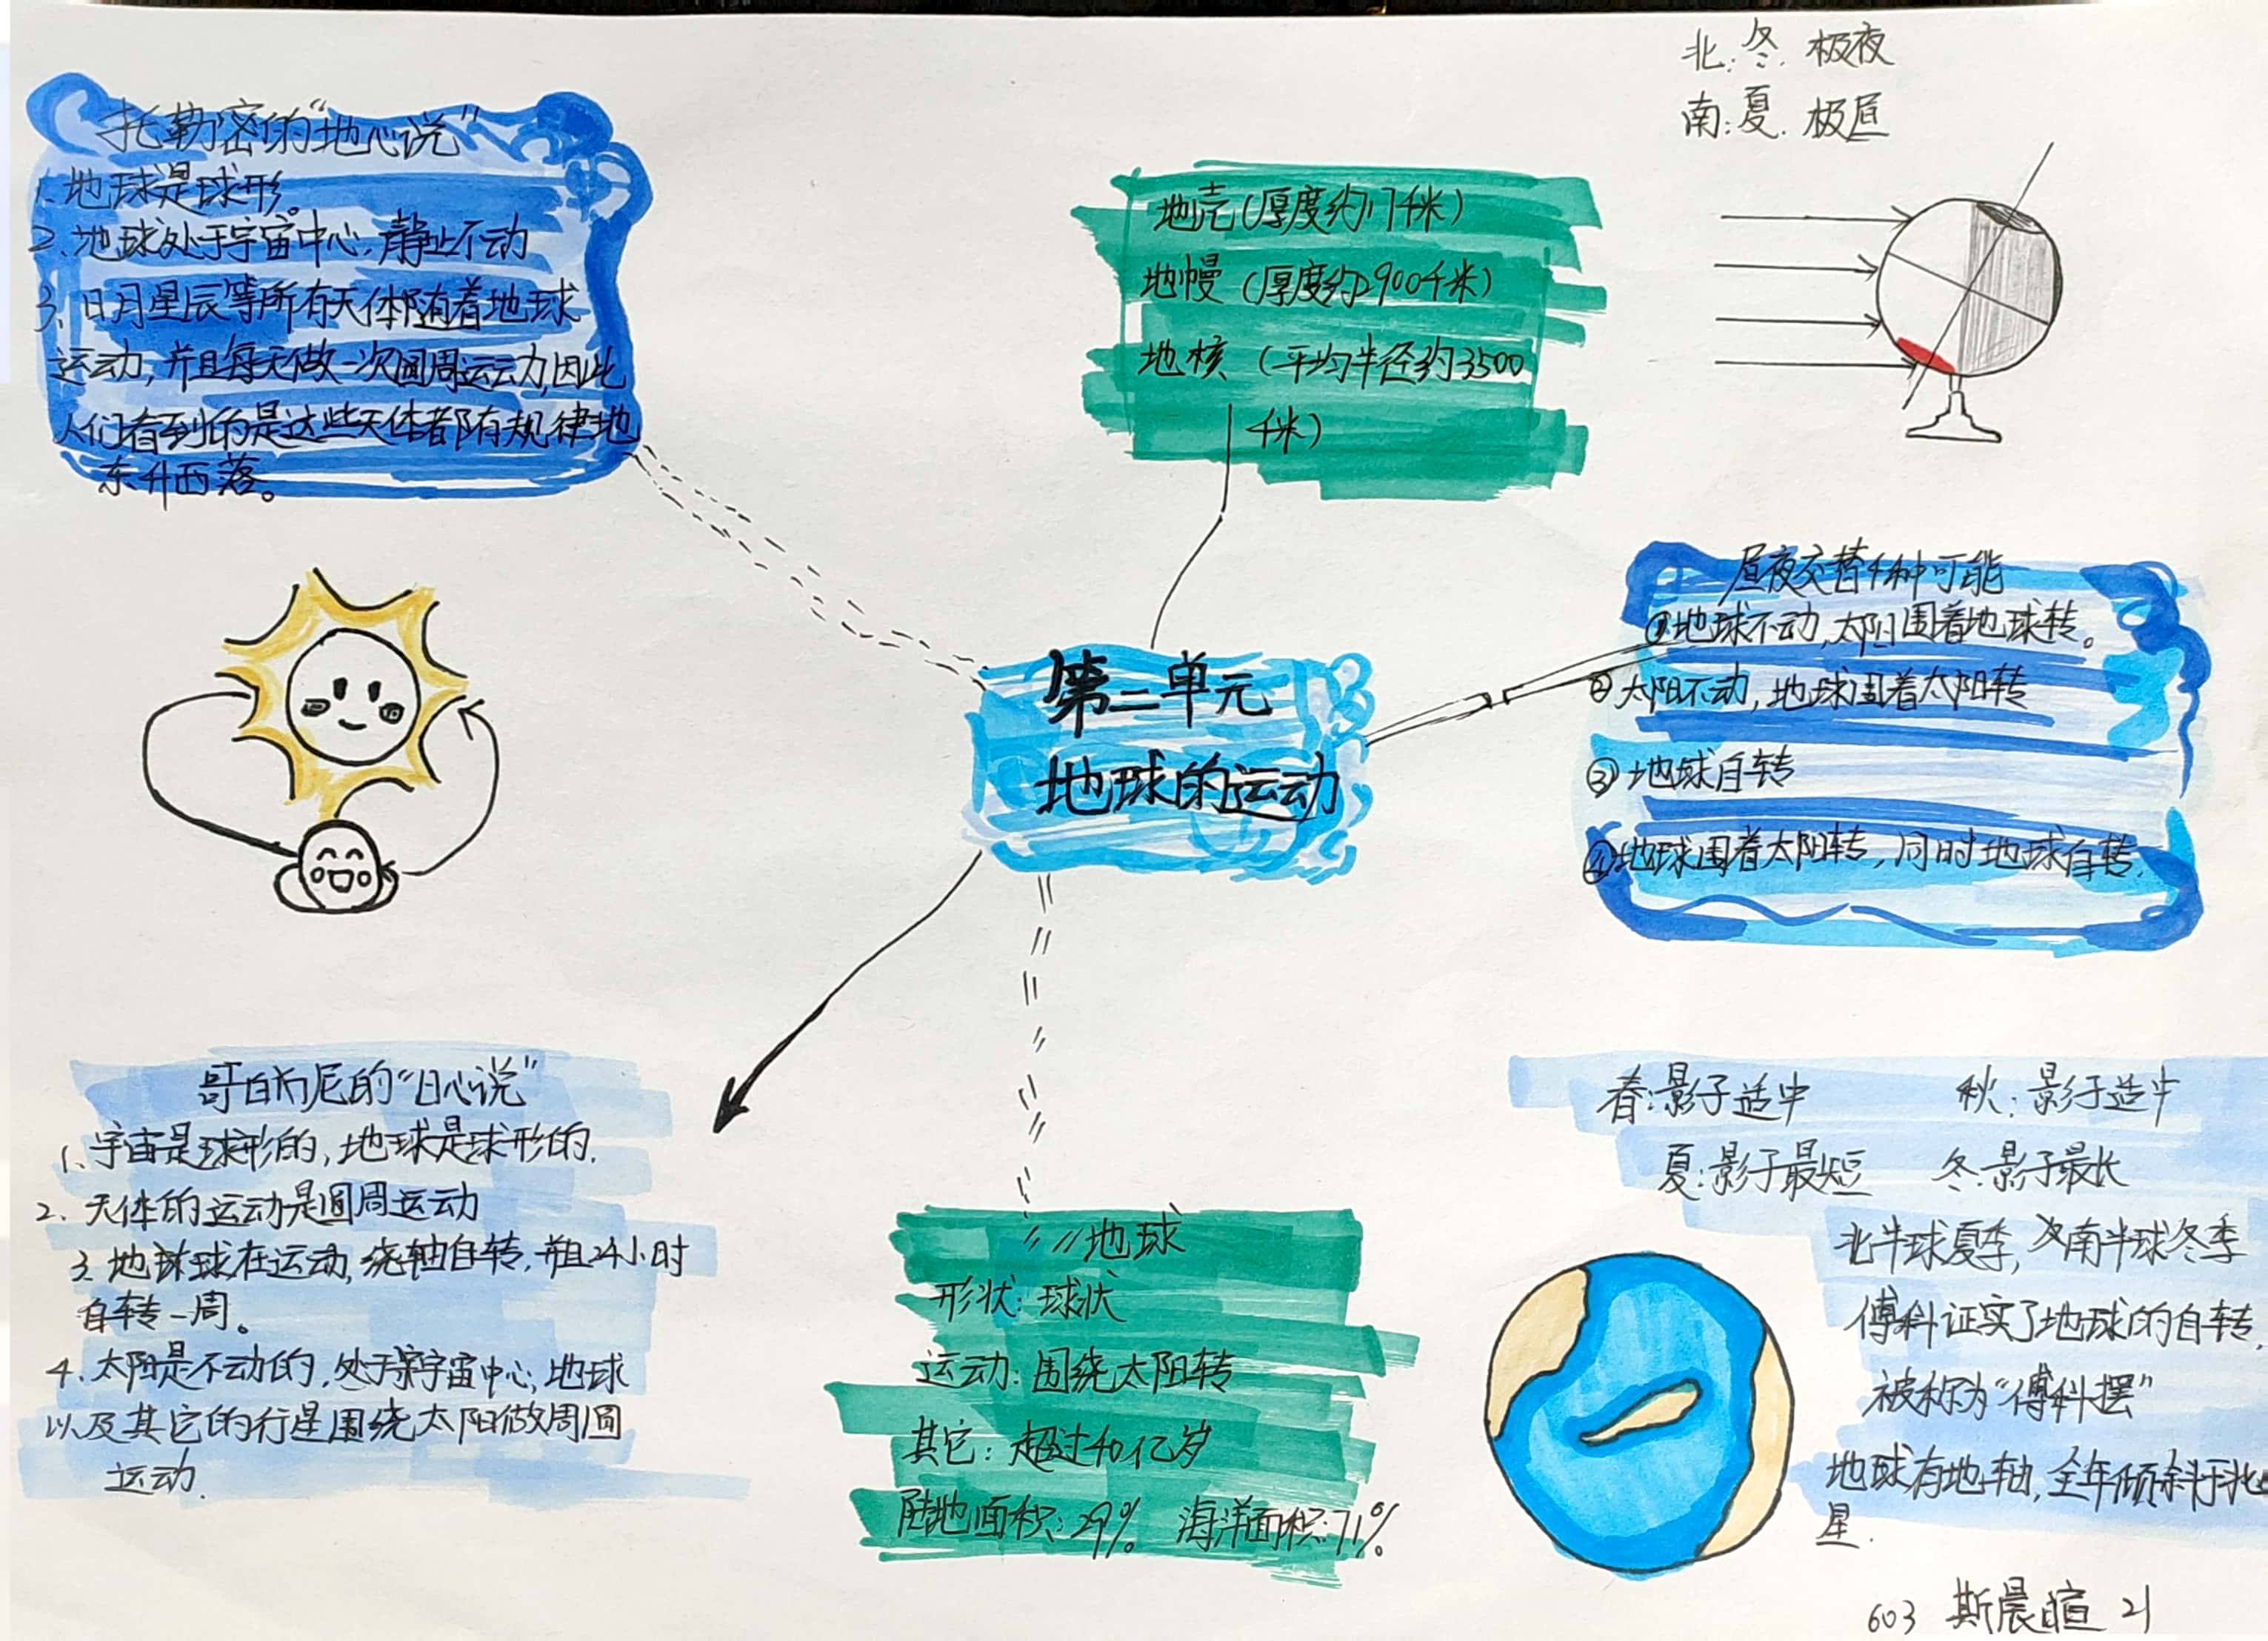 托勒密的“地心说”
1.地球是球形。
2.地球处于宇宙中心,静止不动
3.日月星辰等所有天体随着地球
运动,并且每天做一次圆周运动,因此
人们看到的是这些天体都有规律地
东升西落。
地壳(厚度约17千米)
地幔(厚度约2900千米)
地核(平均半径约3500
千米)
北:冬.极夜
南:夏.极昼
昼夜交替4种可能
①地球不动,太阳围着地球转。
②太阳不动,地球围着太阳转
③地球自转
④地球围着太阳转,同时地球自转.
第二单元
地球的运动
哥白尼的“日心说”
1.宇宙是球形的,地球是球形的.
2.天体的运动是圆周运动
3.地球在运动,绕轴自转,并且24小时
自转一周。
4.太阳是不动的,处于宇宙中心,地球
以及其它的行星围绕太阳做周圆
运动.
地球
形状:球状
运动:围绕太阳转
其它:超过40亿岁
陆地面积:29% 海洋面积:71%
春:影子适中 秋:影子适中
夏:影子最短 冬:影子最长
北半球夏季,南半球冬季
傅科证实了地球的自转,
被称为“傅科摆”
地球有地轴,全年倾斜于北
星.
603 斯晨暄 21